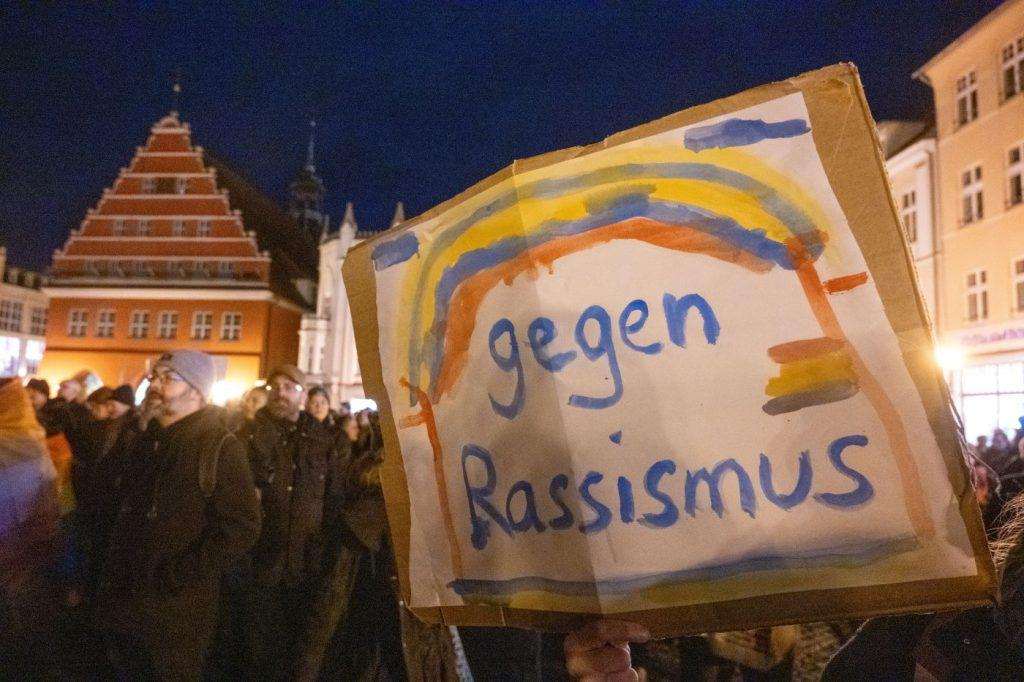 gegen
Rassismus